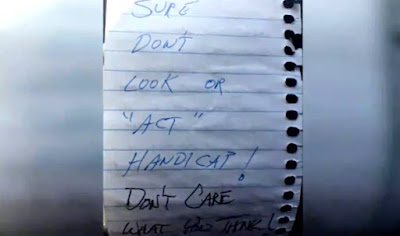 SURE
DON'T
LOOK OR
"ACT"
HANDICAP!
DON'T CARE
WHAT YOU THINK!